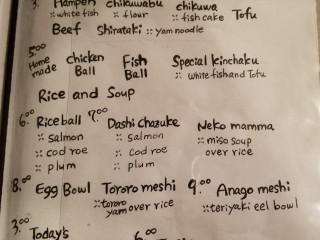 3. Hampen chikuwabu chikuwa Tofu
※white fish ※ flour ※fish cake
Beef Shirataki ※ yam noodle
5.00 Home made chicken Ball Fish Ball Special Kinchaku
※ white fish and Tofu
Rice and Soup
6.00 Rice ball 7.00 Dashi Chazuke Neko mamma
※ salmon ※ salmon ※ miso soup
※ cod roe ※ cod roe over rice
※ plum ※ plum
8.00 Egg Bowl Tororo meshi 9.00 Anago meshi
※tororo yam over rice ※teriyaki eel bowl
3.00 Today's 6.00